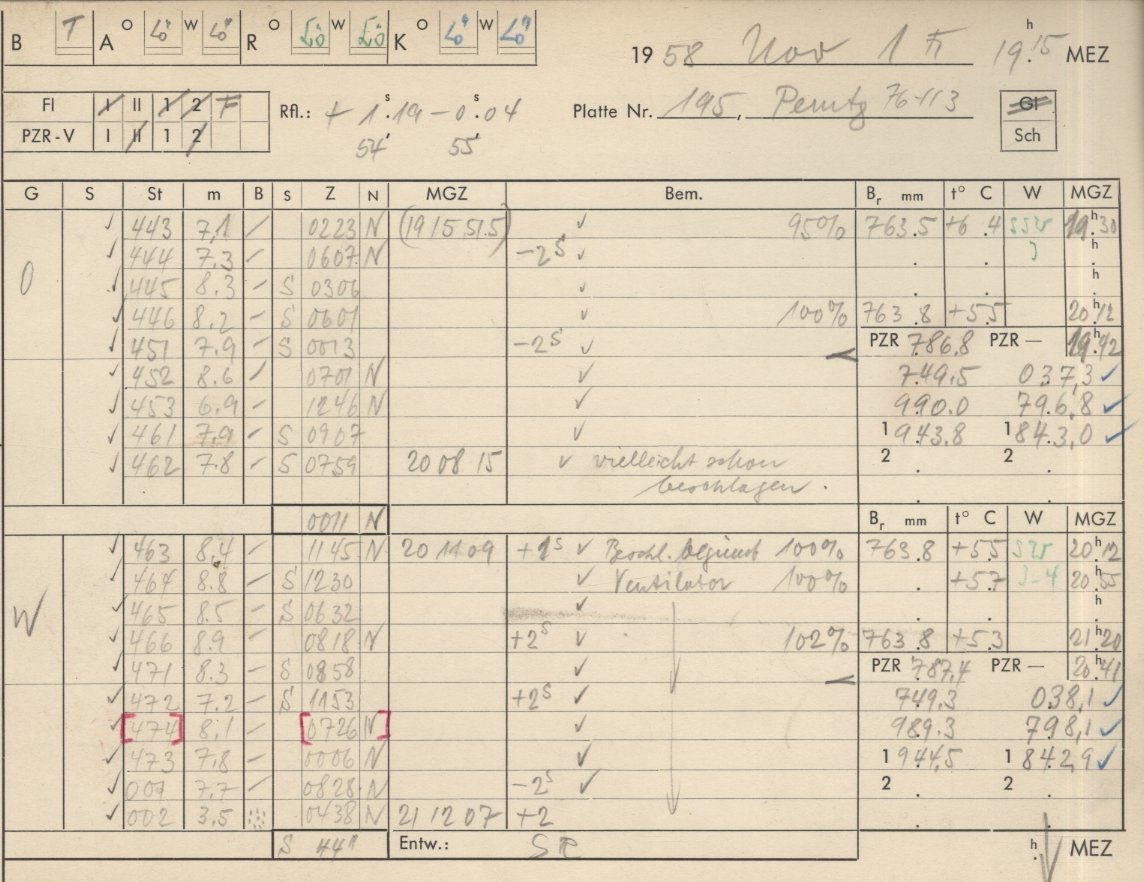 B T A O Lö W Lö R O Lö W Lö K O Lö W Lö
1958 Nov 1 Fr 19h.15 MEZ
Fl I II 1 2 F Rfl.: + 1s.19 - 0s.04 Platte Nr. 195, Perutz 76-113 Gl
PZR-V I II 1 2 54' 55' Sch
G S St m B S Z N MGZ Bem. Br mm t° C W MGZ
✓ 443 7,1 / 0223 N (19 15 51.5) ✓ 95% 763.5 +6.4 SSW 19h30
✓ 444 7.3 / 0607 N -2s ✓ 3 h
O ✓ 445 8.3 / S 0306 ✓ h
✓ 446 8.2 / S 0601 ✓ 100% 763.8 +5.5 20h12
✓ 451 7.9 - S 0013 -2s ✓ PZR 786.8 PZR — 19h42
✓ 452 8.6 / 0701 N ✓ 749.5 037,3 ✓
✓ 453 6.9 - 1246 N ✓ 990.0 796,8 ✓
✓ 461 7.9 - S 0907 ✓ 1 943.8 1 843,0 ✓
✓ 462 7.8 - S 0759 20 08 15 ✓ vielleicht schon 2 . 2 .
beschlagen.
0011 N Br mm t° C W MGZ
✓ 463 8.4 - 1145 N 20 11 09 +1s ✓ Beschl. beginnt 100% 763.8 +5.5 SW 20h12
✓ 464 8.8 - S 1230 ✓ Ventilator 100% +5.7 3-4 20h55
W ✓ 465 8.5 - S 0632 ✓ h
✓ 466 8.9 - 0818 N +2s ✓ 102% 763.8 +5.3 21h20
✓ 471 8.3 - S 0858 ✓ PZR 787,4 PZR — 20h41
✓ 472 7.2 - S 1153 +2s ✓ 749,3 038,1 ✓
✓ [474] 8,1 / [0726 N] ✓ 989.3 798,1 ✓
✓ 473 7.8 - 0006 N ✓ 1 944,5 1 842,9 ✓
✓ 001 7.7 0828 N -2s ✓ 2 . 2 .
✓ 002 3,5 0438 N 21 12 07 +2
S 44" Entw.: h MEZ